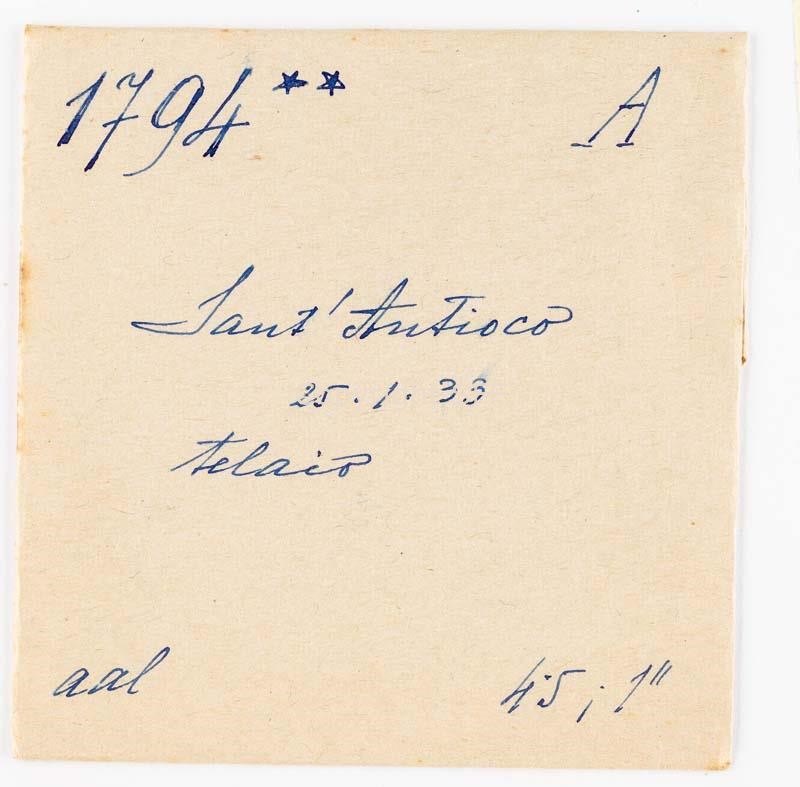 1794** A
Sant'Antioco
25.1.33
telaio
aal 4.5; 1"